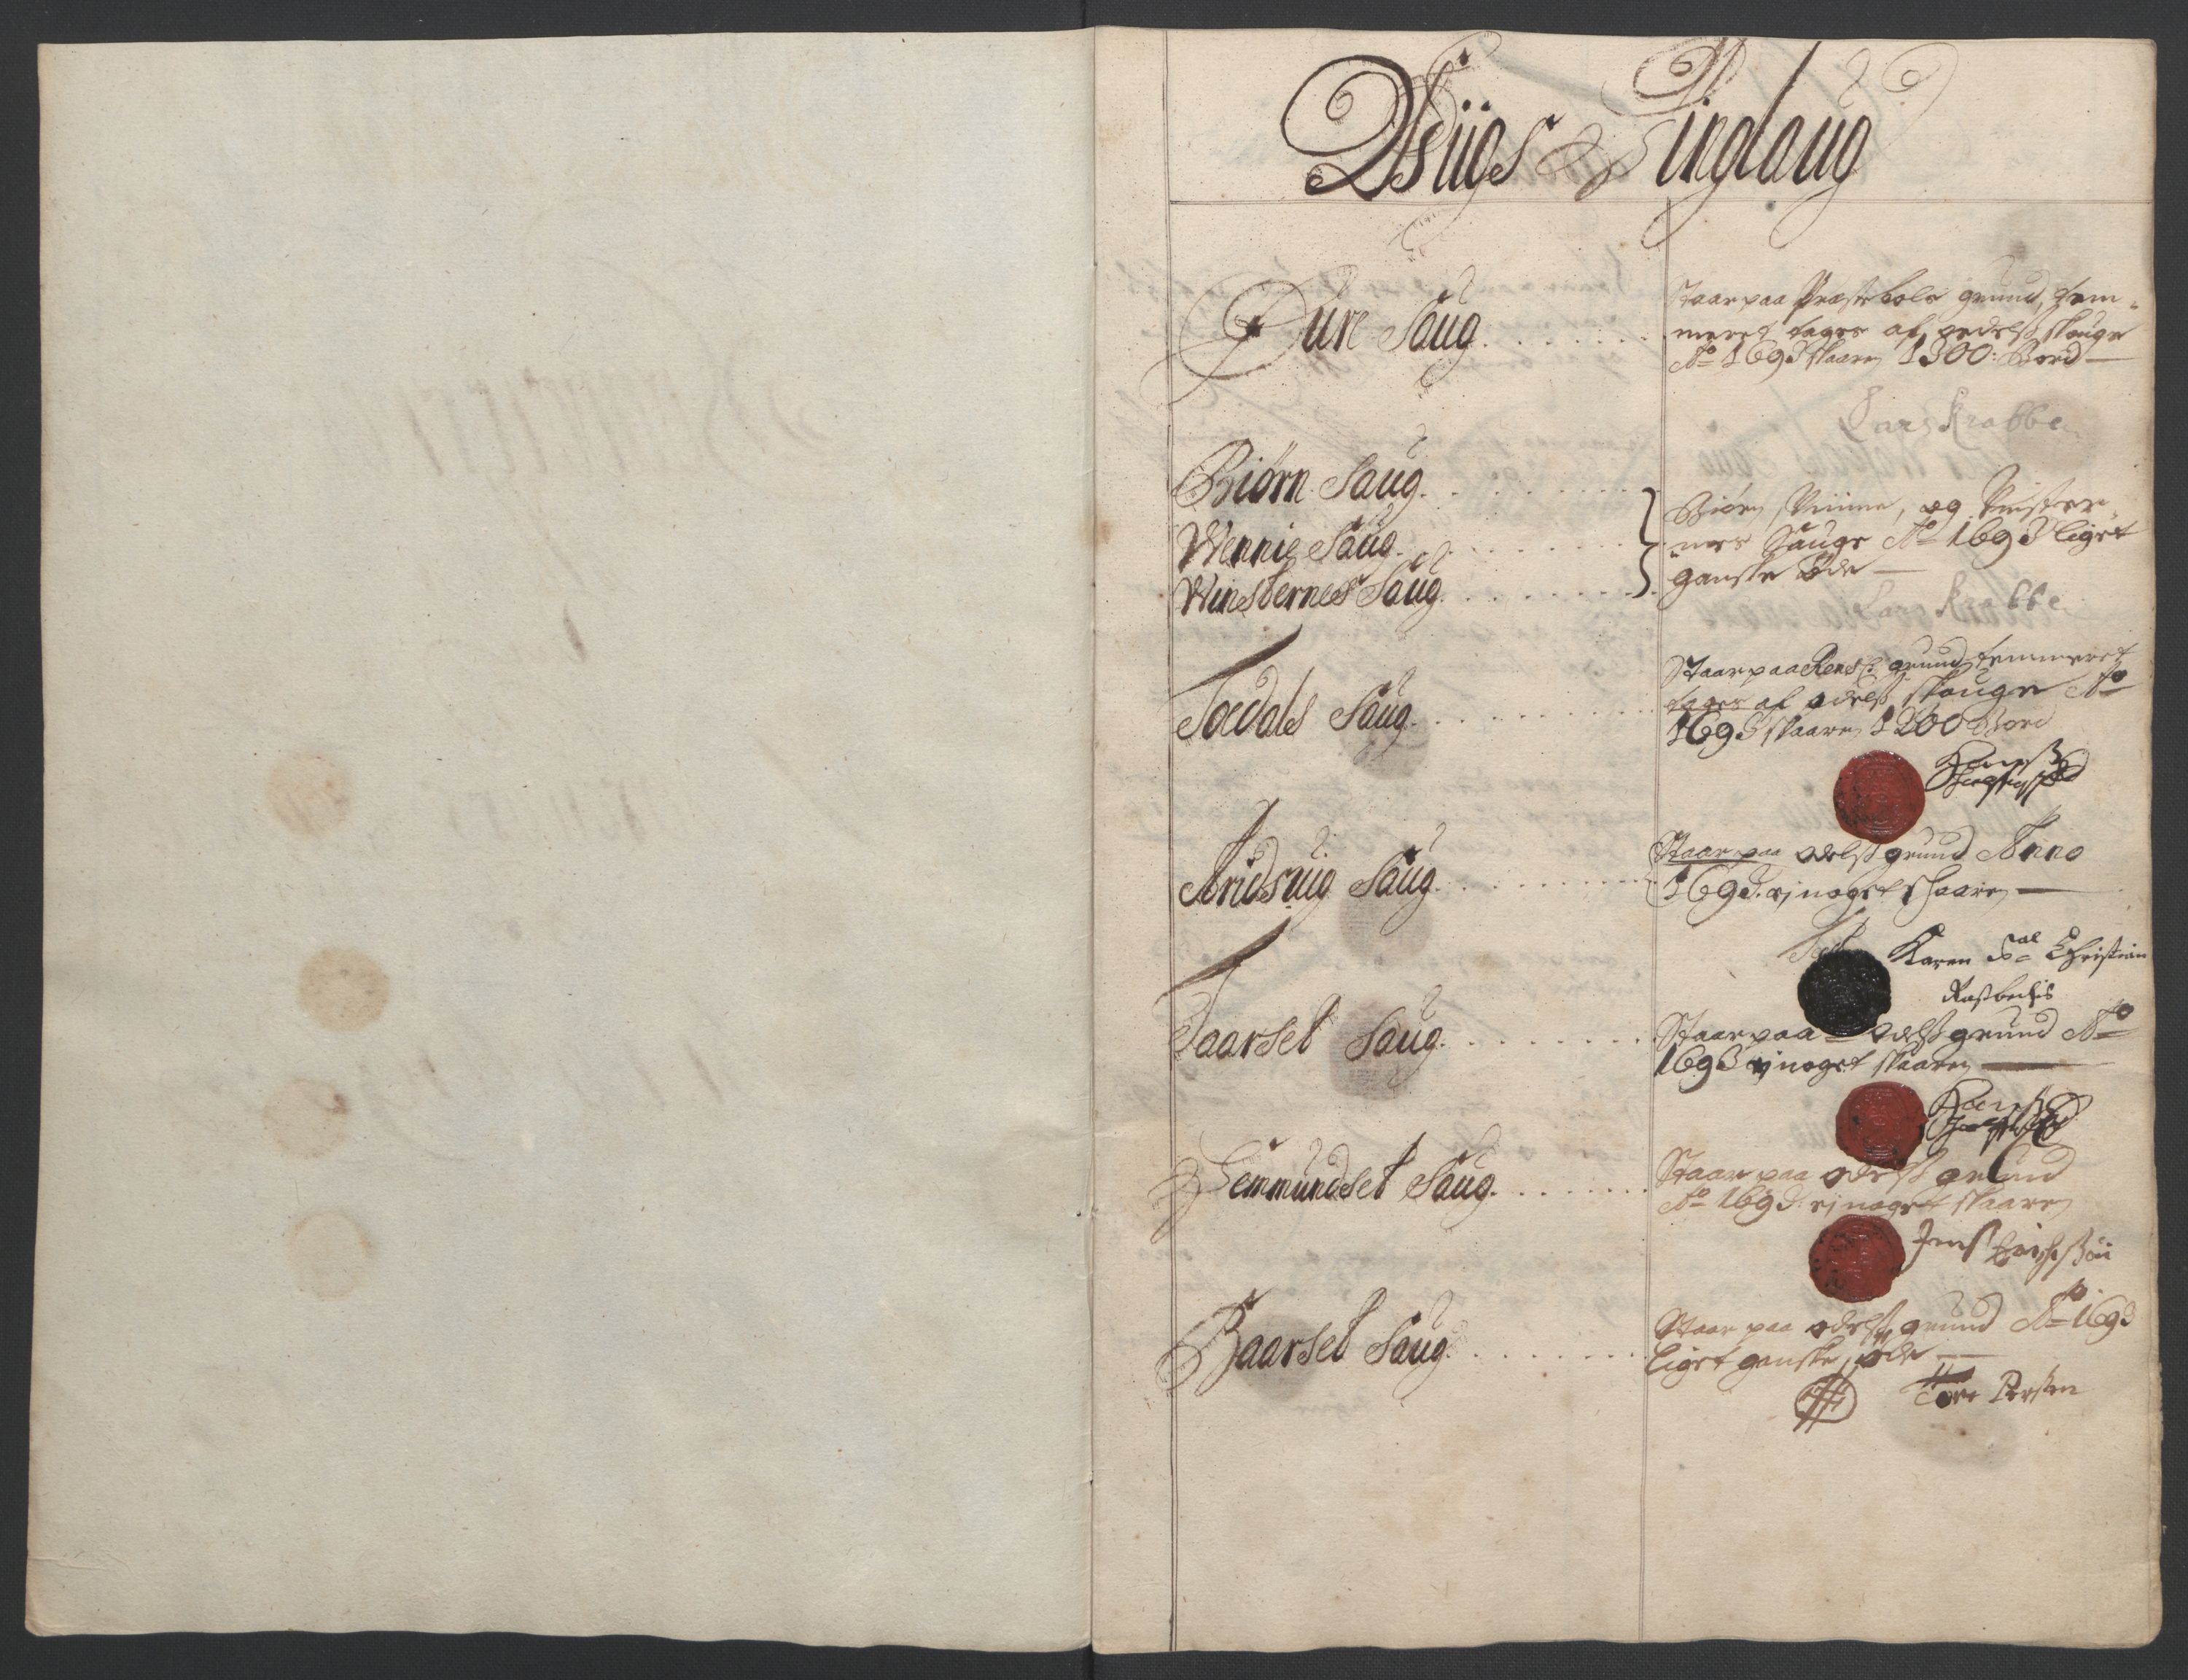 Dsüigs Tinglaug
Qure Saug
Staar paa Præstebols grund, Tem-
meret tages af odelss skouge
Ao 1693 skaaren 1300: Bord
Lars Krabbe
Biørn Saug
Wennie Saug
Winsternes Saug
Biørn Winne, og Vinster-
nes Sauge Ao 1693 liget
ganske øde
Lars Krabbe
Todals Saug
Staar paa grund temmeret
tages af odelss skouge Ao
1693 skaaren 1200 Bord
Arudsuig Saug
Staar paa odelss grund Anno
1693. ej noget skaaren
Karen Sal Christian
Rassbechis
Taarset Saug
Staar paa odelss grund Ao
1693 ej noget skaaren
Gemmundset Saug
Staar paa odelss grund
Ao 1693: ej noget skaaren
Jens
Baarset Saug
Staar paa odelss grund Ao 1693
liget ganske øde
Tore Persen